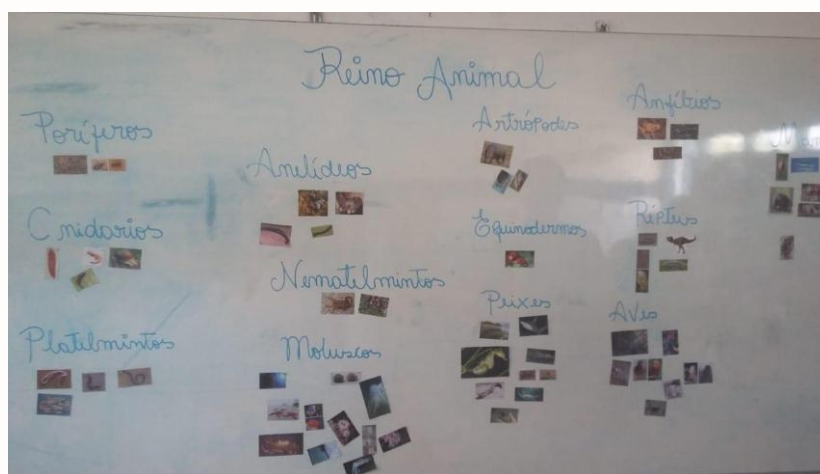 Reino Animal
Poríferos
Cnidarios
Platelmintos
Anelídeos
Nematelmintos
Moluscos
Artrópodes
Equinodermos
Peixes
Anfíbios
Répteis
Aves
Mam